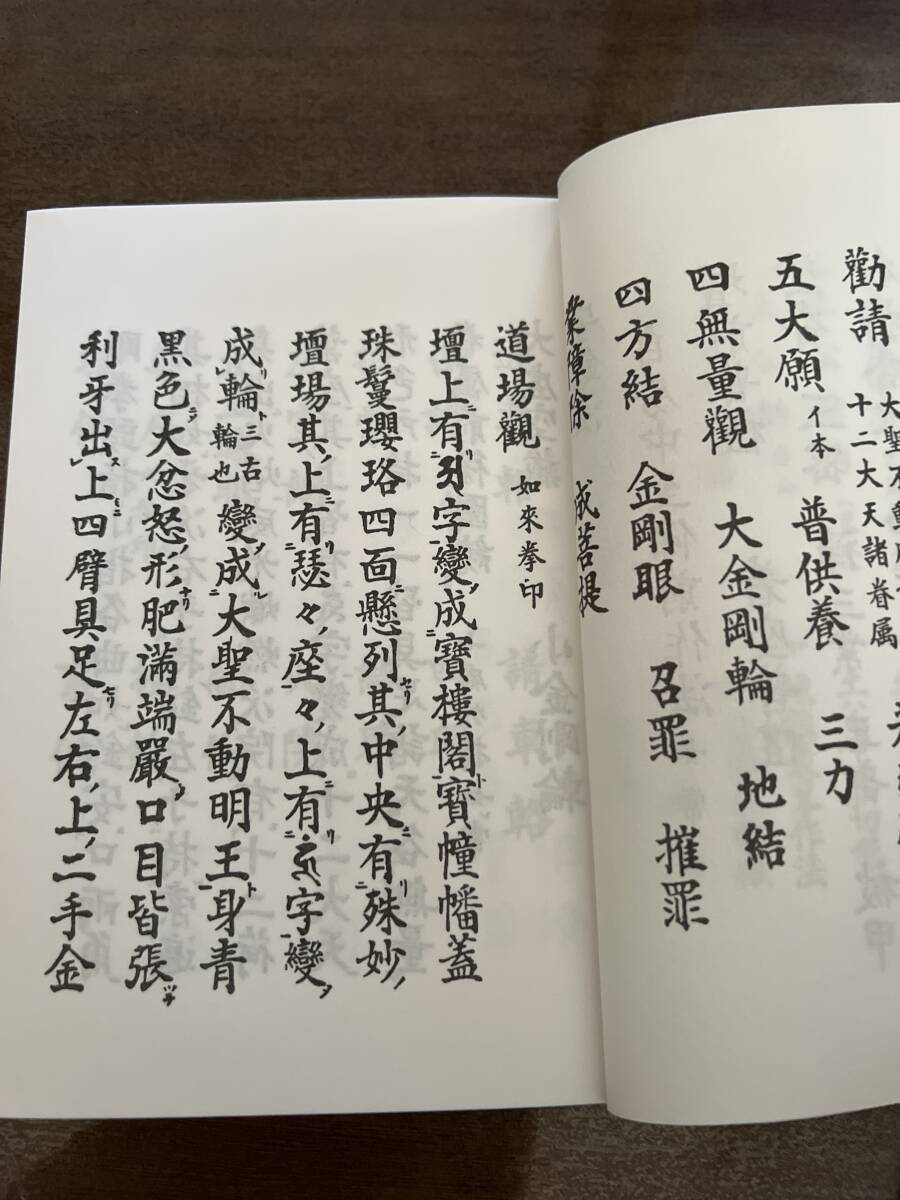 勸請
十二大天諸眷属
五大願 イ本 普供養 三力
四無量觀 大金剛輪 地結
四方結 金剛眼 召罪 摧罪
業障除 成菩提
道場觀 如來拳印
壇上有字變成寶樓閣寶幢幡蓋
珠鬘瓔珞四面懸列其中央有殊妙
壇場其上有瑟々座々上有字變
成輪三古輪也變成大聖不動明王身青
黒色大忿怒形肥滿端嚴口目皆張
利牙出上四臂具足左右上二手金